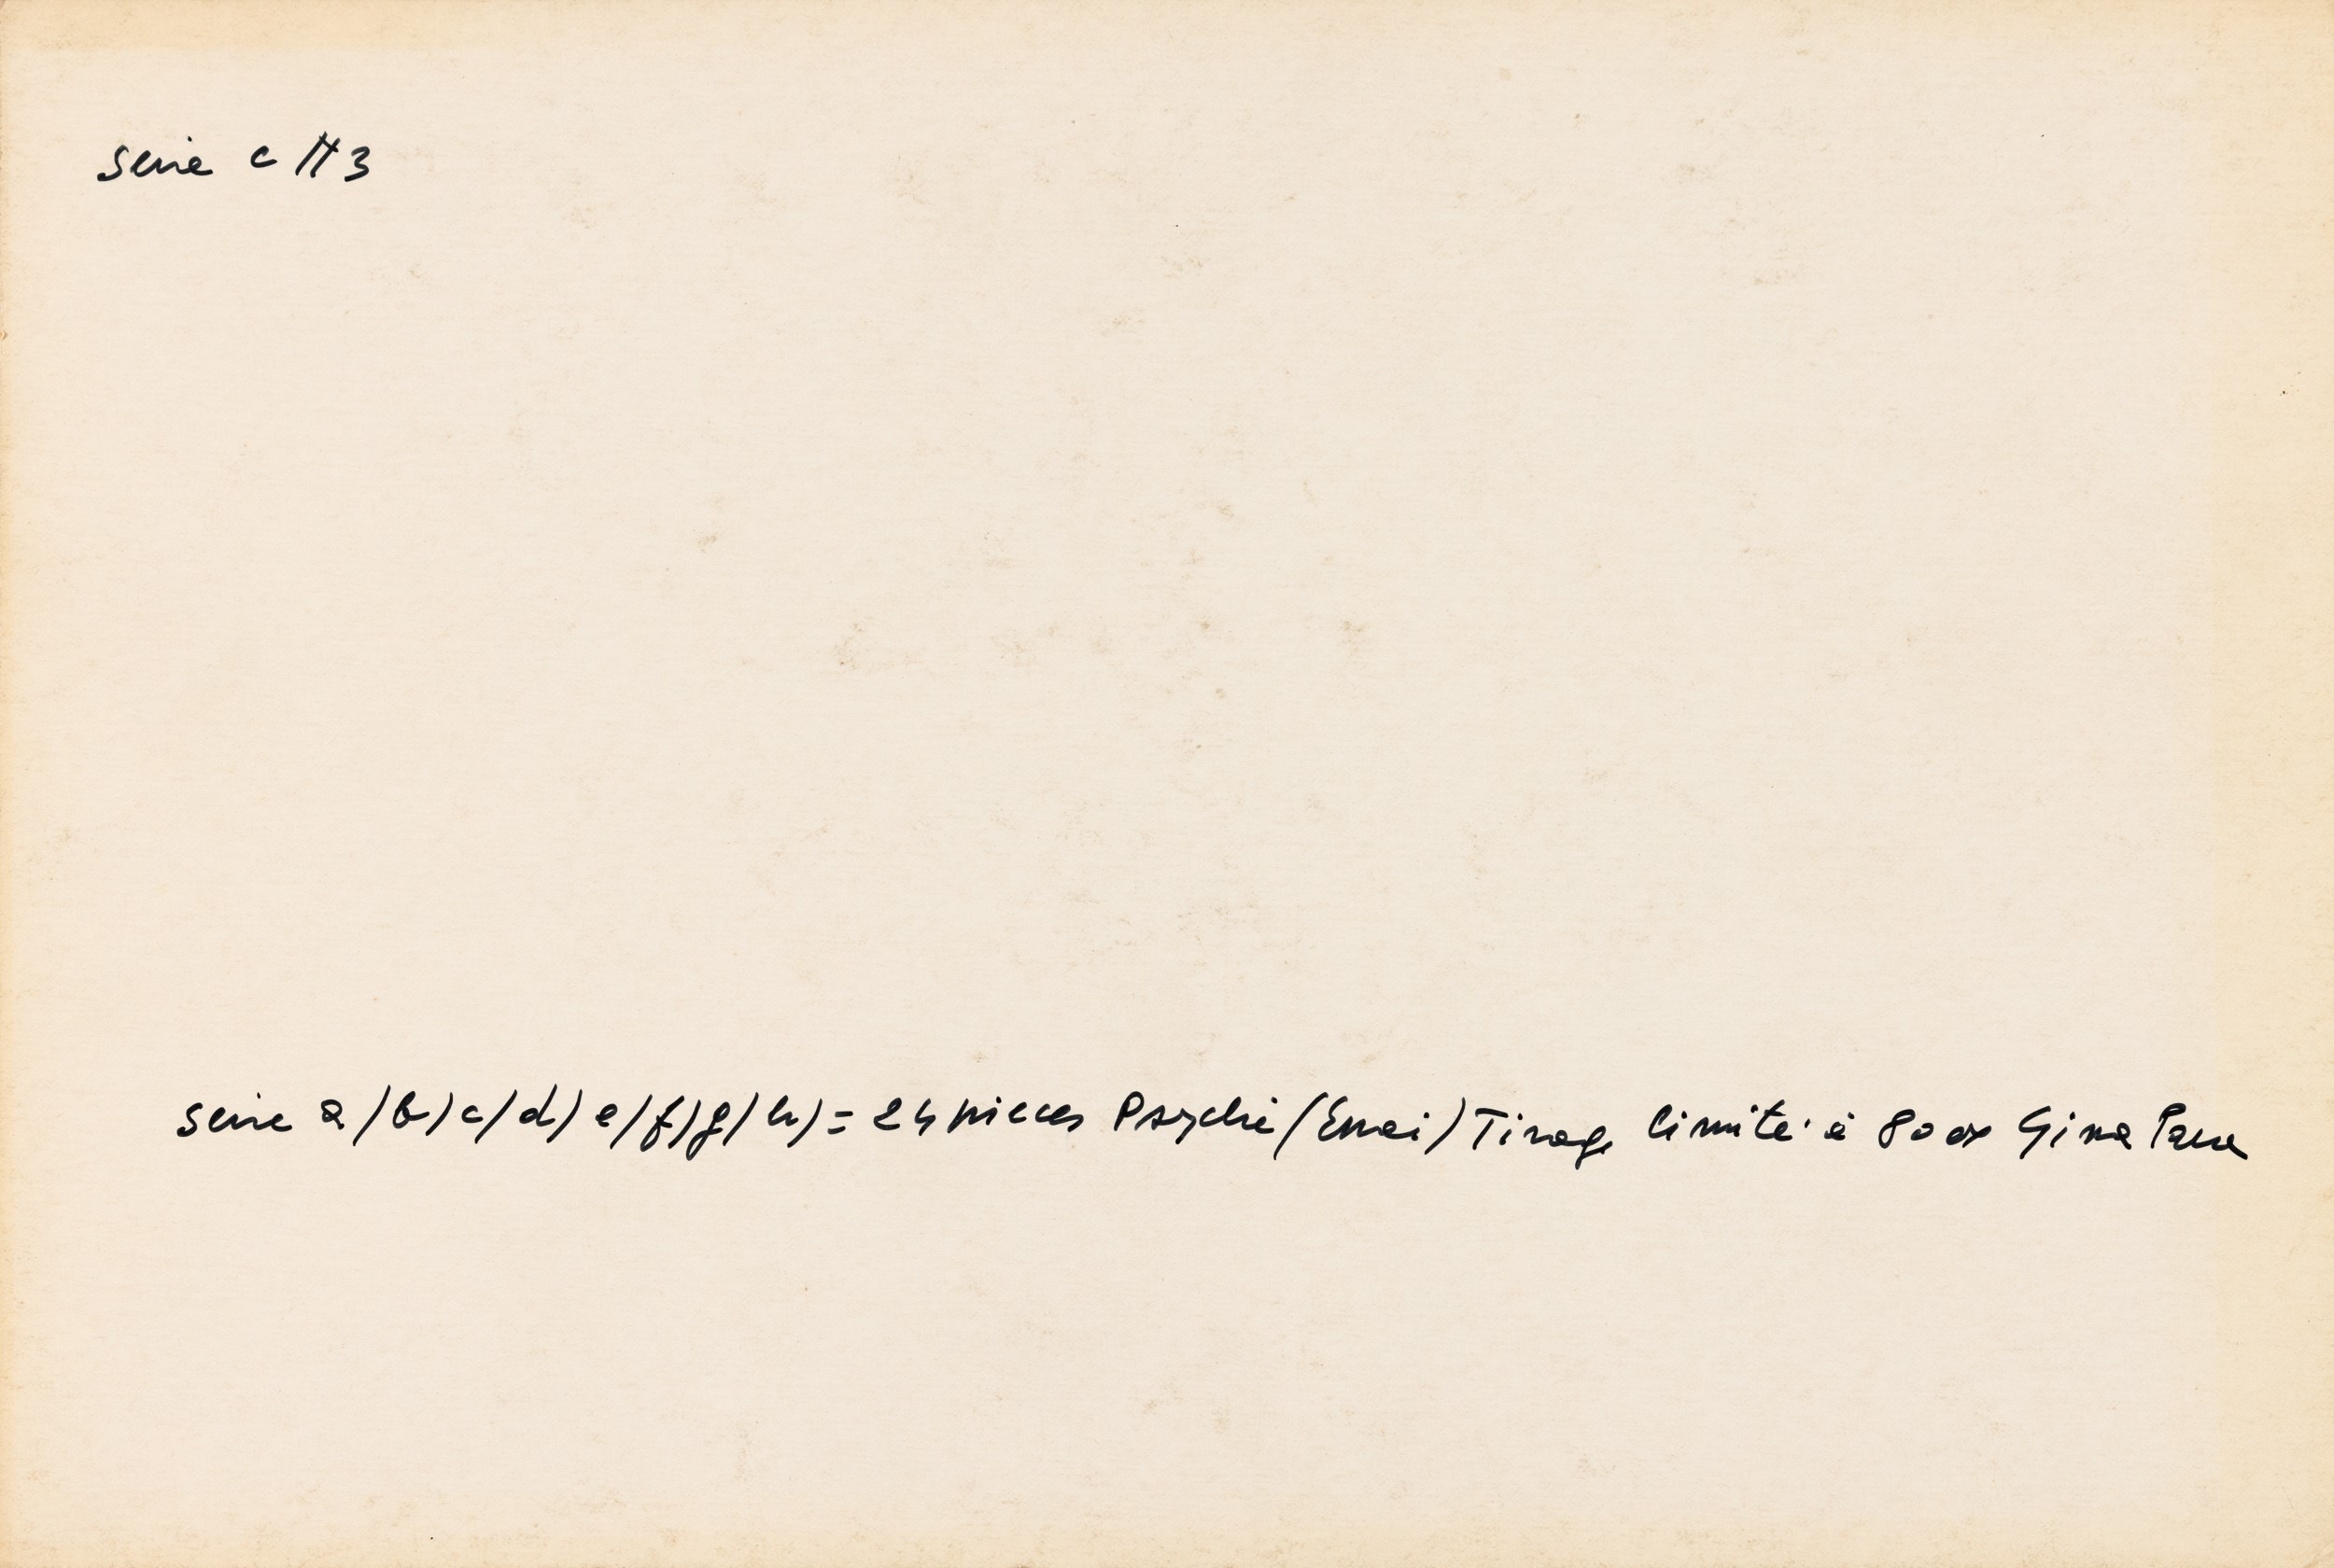 serie c N 3
serie a/b/c/d/e/f/g/h/= 24 pieces Psyché (Essai) Tirage limité à 80 ex Gina Pane